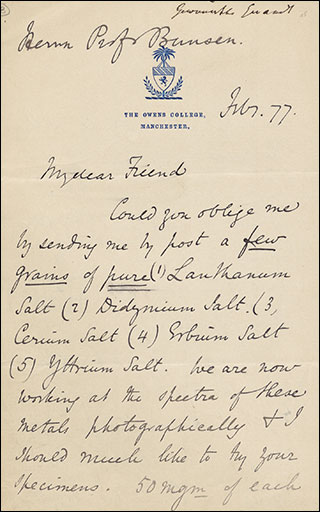 Herrn Profr Bunsen.
THE OWENS COLLEGE,
MANCHESTER,
Feby. 77.
My dear Friend
Could you oblige me
by sending me by post a few
grains of pure (1) Lanthanum
Salt (2) Didymium Salt. (3,
Cerium Salt (4) Erbium Salt
(5) Yttrium Salt. We are now
working at the spectra of these
metals photographically & I
should much like to try your
specimens. 50 mgm of each